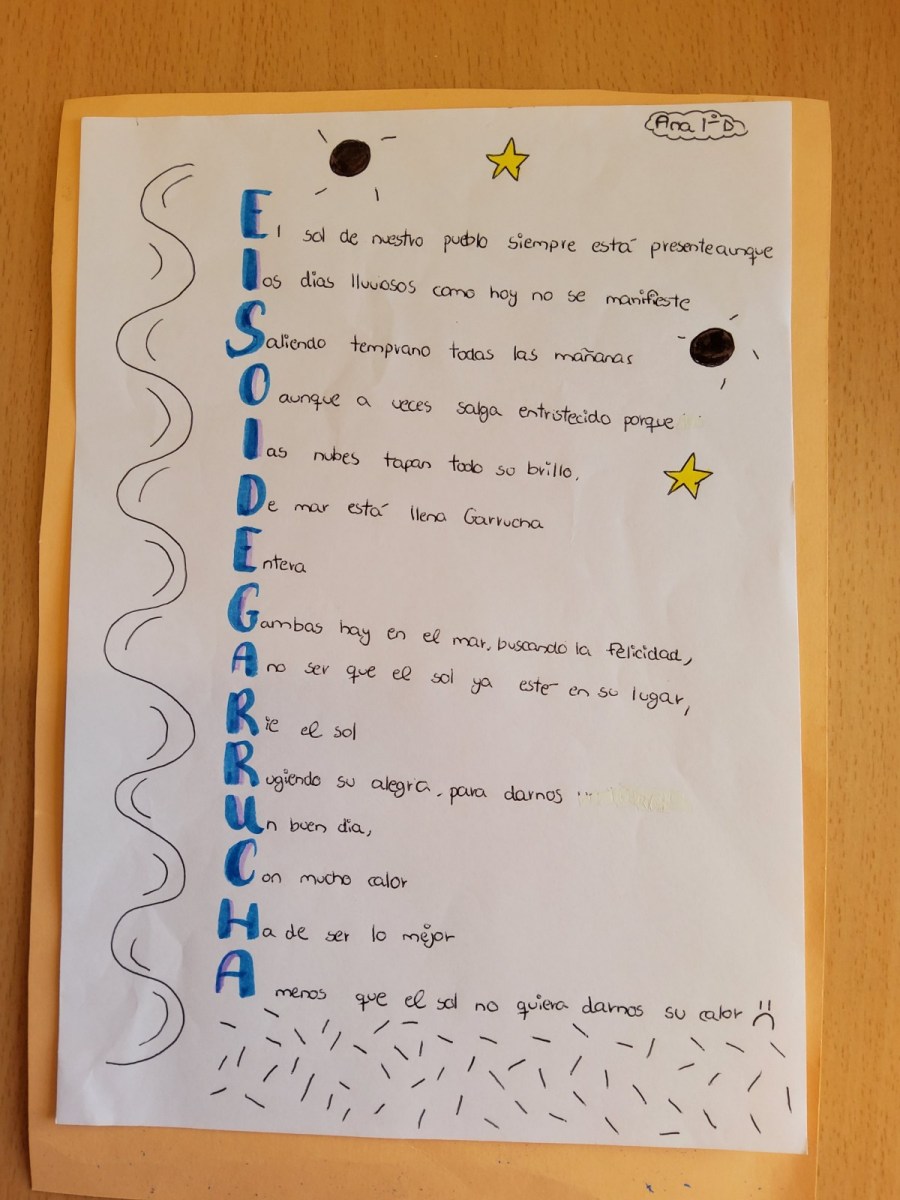 Ana 1ºD
El sol de nuestro pueblo siempre está presente aunque
los dias lluviosos como hoy no se manifieste
Saliendo temprano todas las mañanas
O aunque a veces salga entristecido porque
las nubes tapan todo su brillo.
De mar está llena Garrucha
Entera
Gambas hay en el mar, buscando la felicidad,
A no ser que el sol ya esté en su lugar,
Rie el sol
Rugiendo su alegra, para darnos ...
Un buen dia,
Con mucho calor
Ha de ser lo mejor
A menos que el sol no quiera darnos su calor